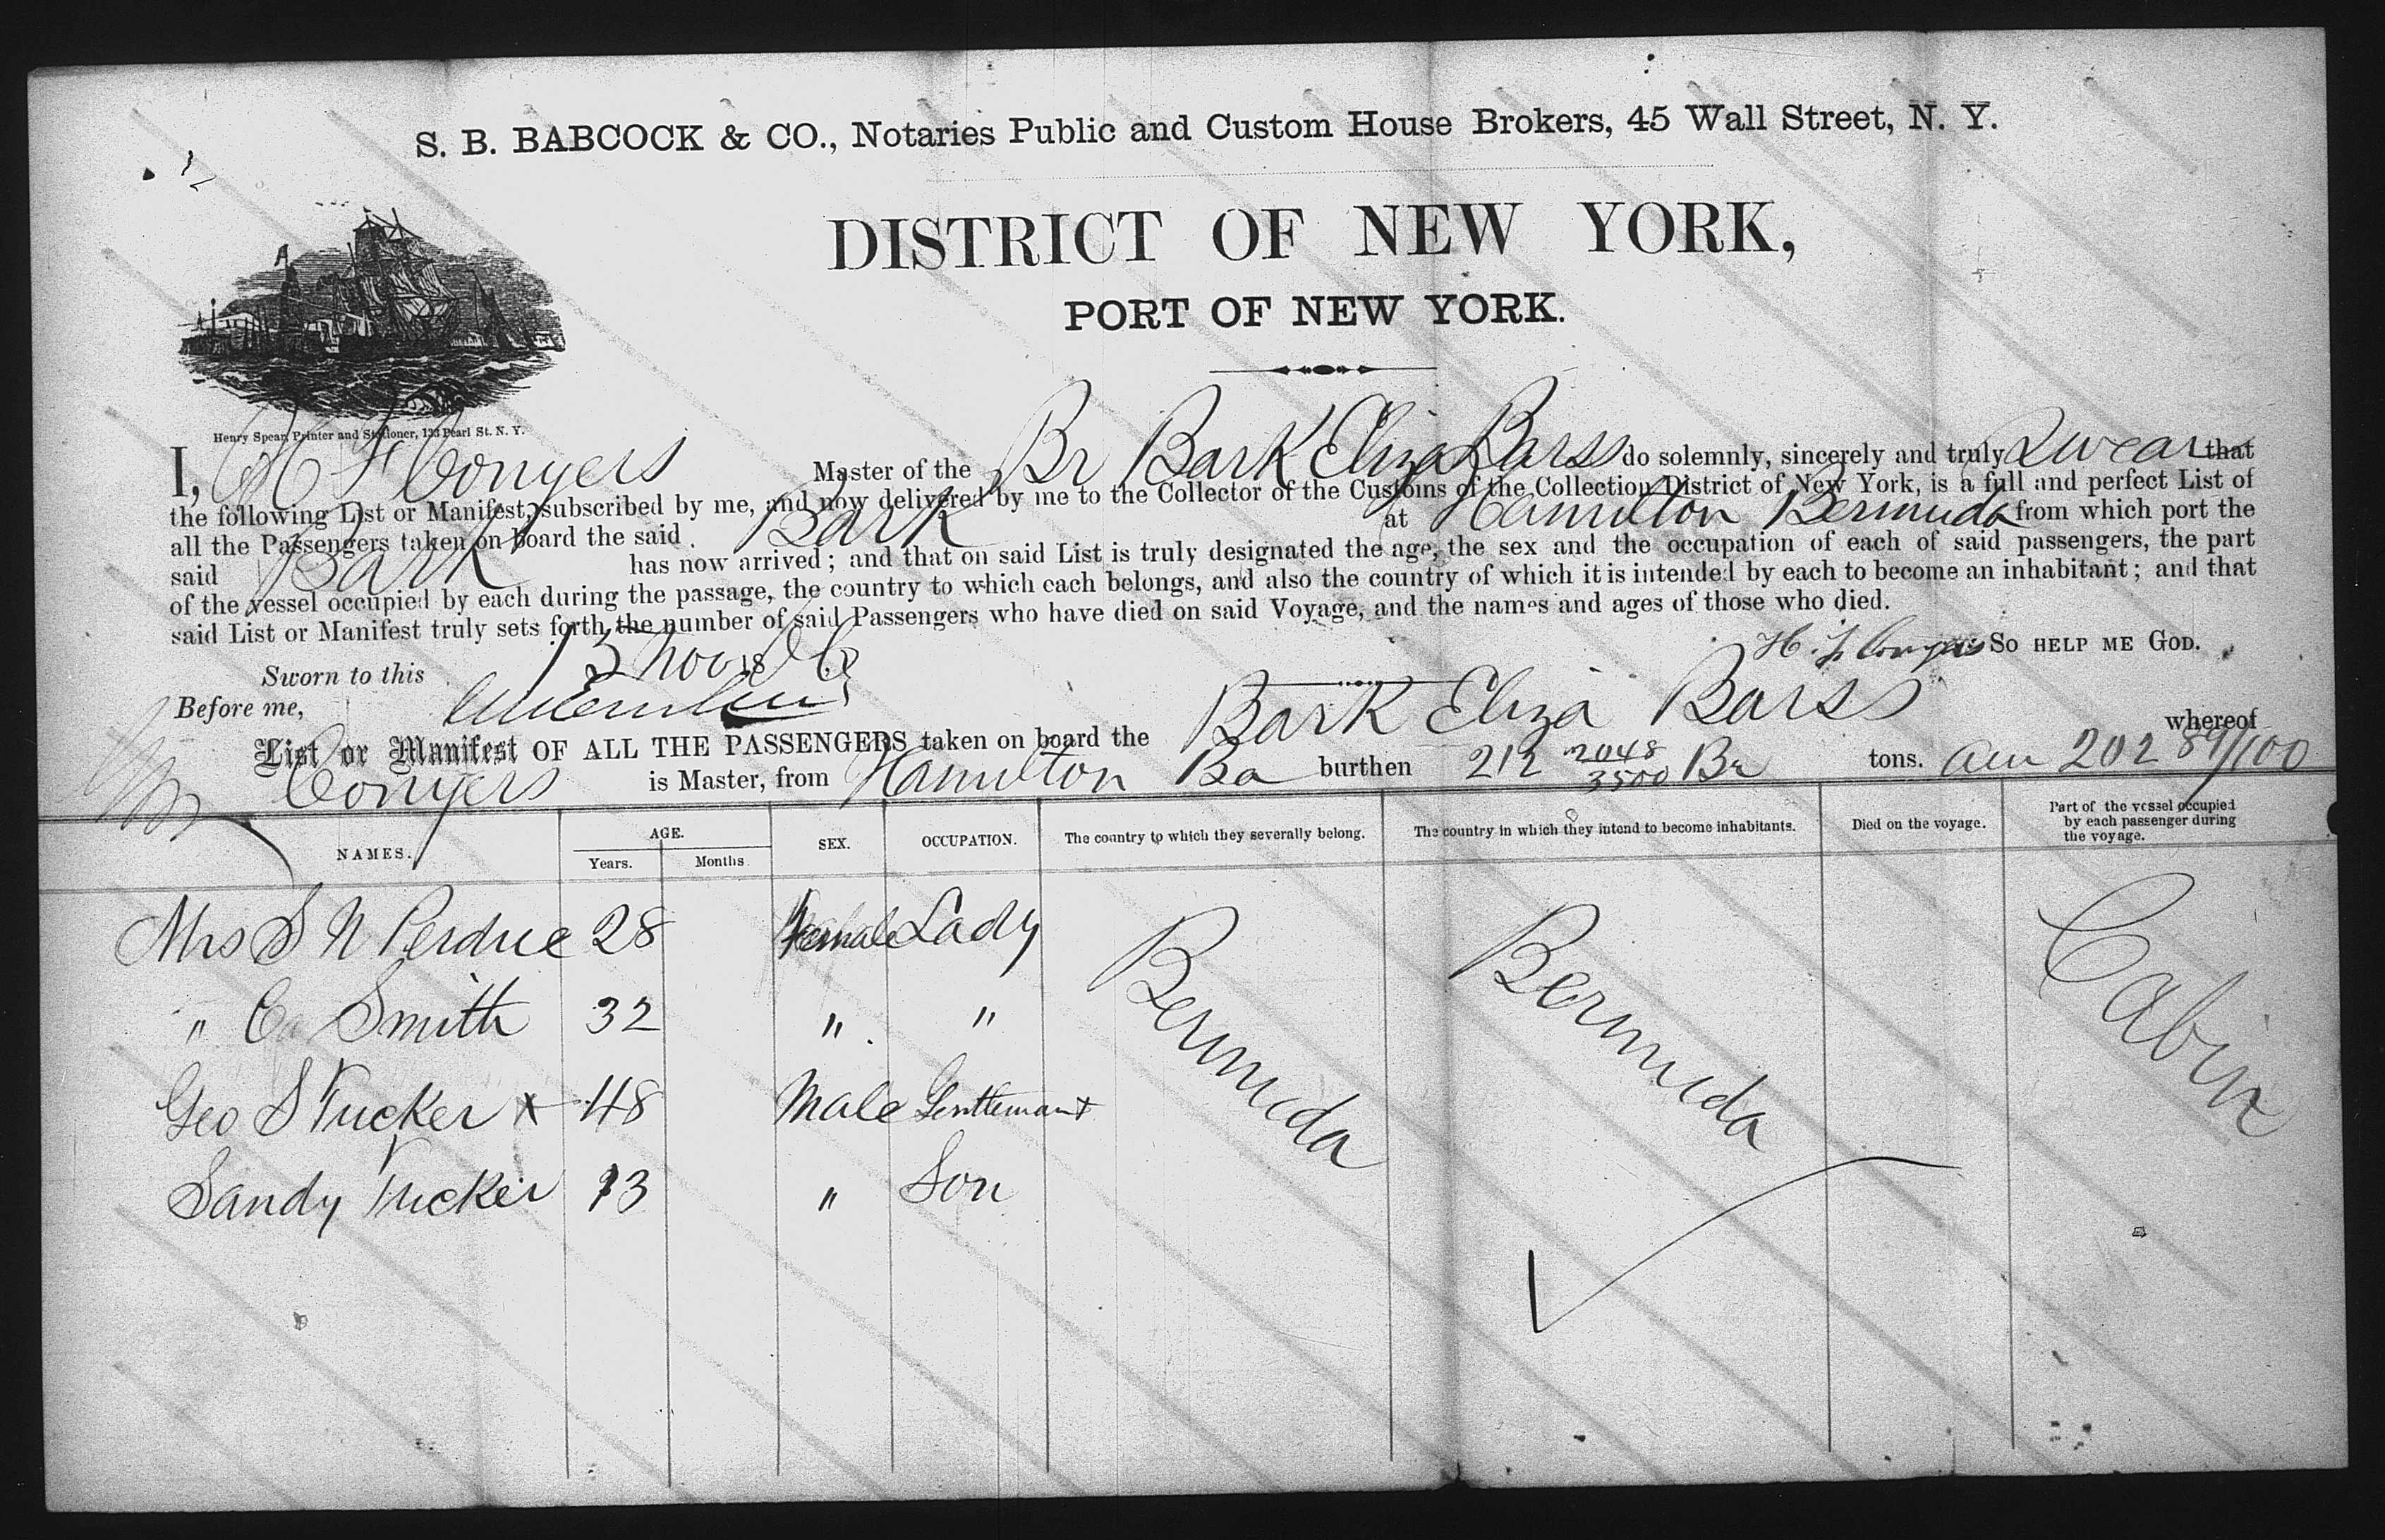 S. B. BABCOCK & CO., Notaries Public and Custom House Brokers, 45 Wall Street, N. Y.
DISTRICT OF NEW YORK,
PORT OF NEW YORK.
Henry Spear, Printer and Stationer, 133 Pearl St. N. Y.
I, Conyers Master of the Br Bark Eliza Barss do solemnly, sincerely and truly Swear that
the following List or Manifest, subscribed by me, and now delivered by me to the Collector of the Customs of the Collection District of New York, is a full and perfect List of
all the Passengers taken on board the said Bark at Hamilton Bermuda from which port the
said Bark has now arrived; and that on said List is truly designated the age, the sex and the occupation of each of said passengers, the part
of the vessel occupied by each during the passage, the country to which each belongs, and also the country of which it is intended by each to become an inhabitant; and that
said List or Manifest truly sets forth the number of said Passengers who have died on said Voyage, and the names and ages of those who died.
H. F. Conyers So HELP ME GOD.
Sworn to this 13 Nov 18
Before me,
List or Manifest OF ALL THE PASSENGERS taken on board the Bark Eliza Barss whereof
Conyers is Master, from Hamilton Ba burthen 212 2048/3500 Br tons. Am 202 89/100
NAMES. AGE. Years. Months. SEX. OCCUPATION. The country to which they severally belong. The country in which they intend to become inhabitants. Died on the voyage. Part of the vessel occupied by each passenger during the voyage.
Mrs S N Perdue 28 Female Lady Bermuda Bermuda Cabin
" Smith 32 " "
Geo S Tucker x 48 Male Gentleman x
Sandy Tucker 13 " Son